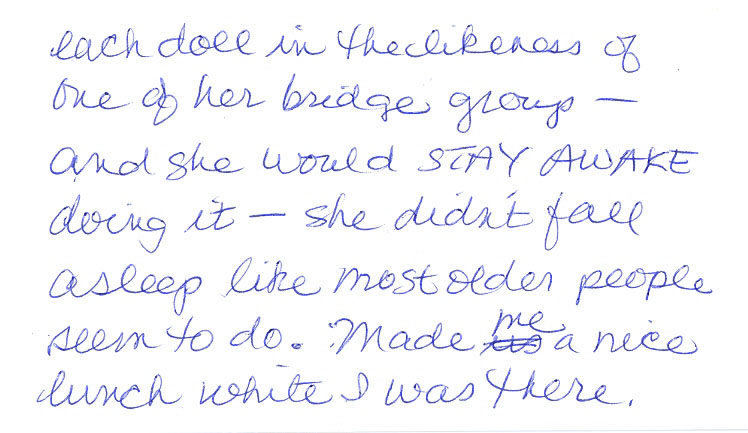 each doll in the likeness of
one of her bridge group —
and she would STAY AWAKE
doing it — she didn't fall
asleep like most older people
seem to do. Made me a nice
lunch white I was there.